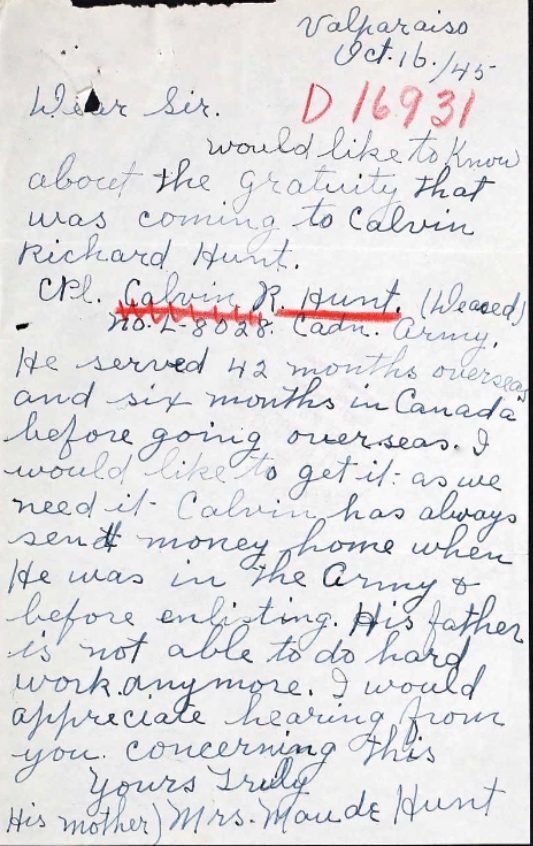 Valparaiso
Oct. 16./45
Dear Sir.
D 16931
would like to Know
about the gratuity that
was coming to Calvin
Richard Hunt.
CPl. Calvin R. Hunt. (Deaced)
no. L-8028. Cadn. Army.
He served 42 months overseas
and six months in Canada
before going overseas. I
would like to get it: as we
need it. Calvin has always
send money home when
He was in the Army &
before enlisting. His father
is not able to do hard
work anymore. I would
appreciate hearing from
you. concerning this
Yours Truly
His mother) Mrs. Maude Hunt